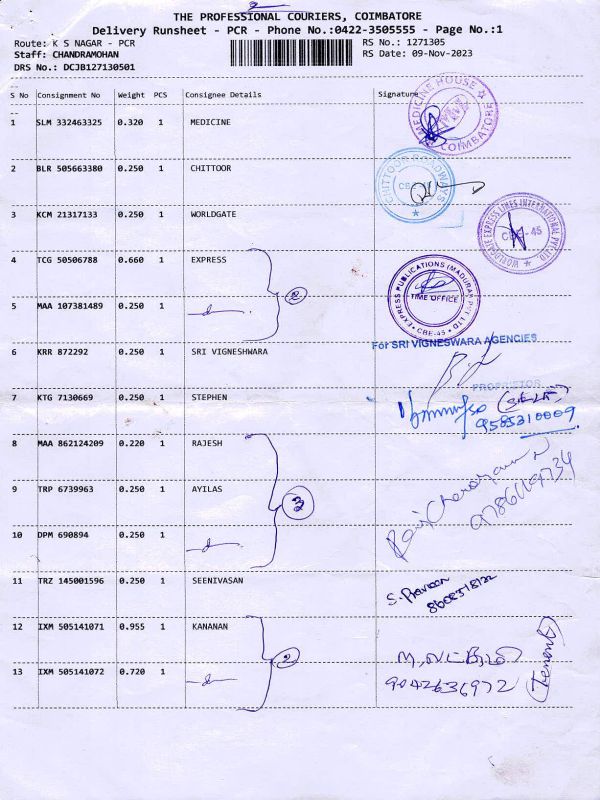 2
THE PROFESSIONAL COURIERS, COIMBATORE
Delivery Runsheet - PCR - Phone No.:0422-3505555 - Page No.:1
Route: K S NAGAR - PCR RS No.: 1271305
Staff: CHANDRAMOHAN RS Date: 09-Nov-2023
DRS No.: DCJB127130501
S No Consignment No Weight PCS Consignee Details Signature
1 SLM 332463325 0.320 1 MEDICINE
MEDICINE HOUSE COIMBATORE
2 BLR 505663380 0.250 1 CHITTOOR
CHITTOOR ROADWAYS
3 KCM 21317133 0.250 1 WORLDGATE
WORLDGATE EXPRESS LINES INTERNATIONAL PVT LTD
4 TCG 50506788 0.660 1 EXPRESS
2
EXPRESS PUBLICATIONS (MADURAI) PVT LTD
TIME OFFICE
CBE-45
5 MAA 107381489 0.250 1
For SRI VIGNESWARA AGENCIES
6 KRR 872292 0.250 1 SRI VIGNESHWARA
PROPRIETOR
7 KTG 7130669 0.250 1 STEPHEN
9585310009
8 MAA 862124209 0.220 1 RAJESH
9 TRP 6739963 0.250 1 AYILAS
3
10 DPM 690894 0.250 1
11 TRZ 145001596 0.250 1 SEENIVASAN
S. Praveen
12 IXM 505141071 0.955 1 KANANAN
2
13 IXM 505141072 0.720 1
9042636972